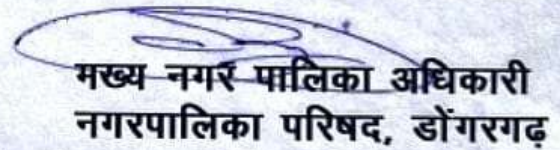 मख्य नगर पालिका अधिकारी
नगरपालिका परिषद, डोंगरगढ़